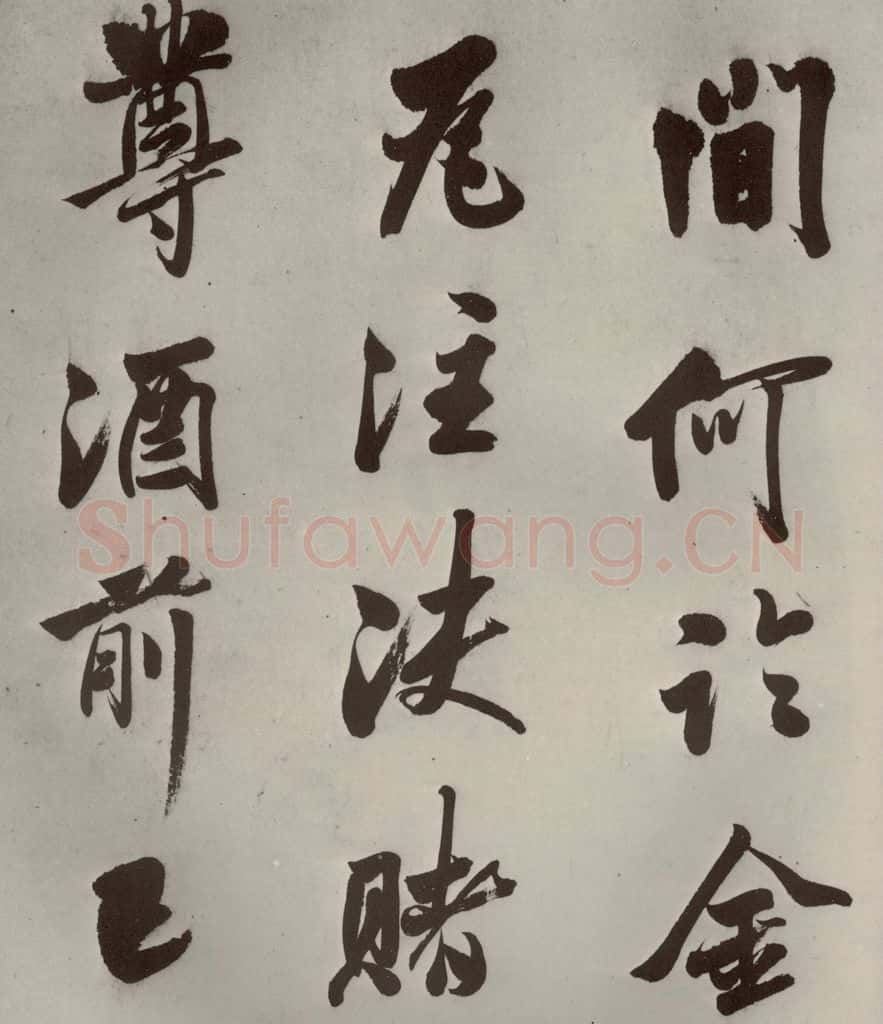 間何訟金
瓦注決賭
尊酒前已
Shufawang.CN